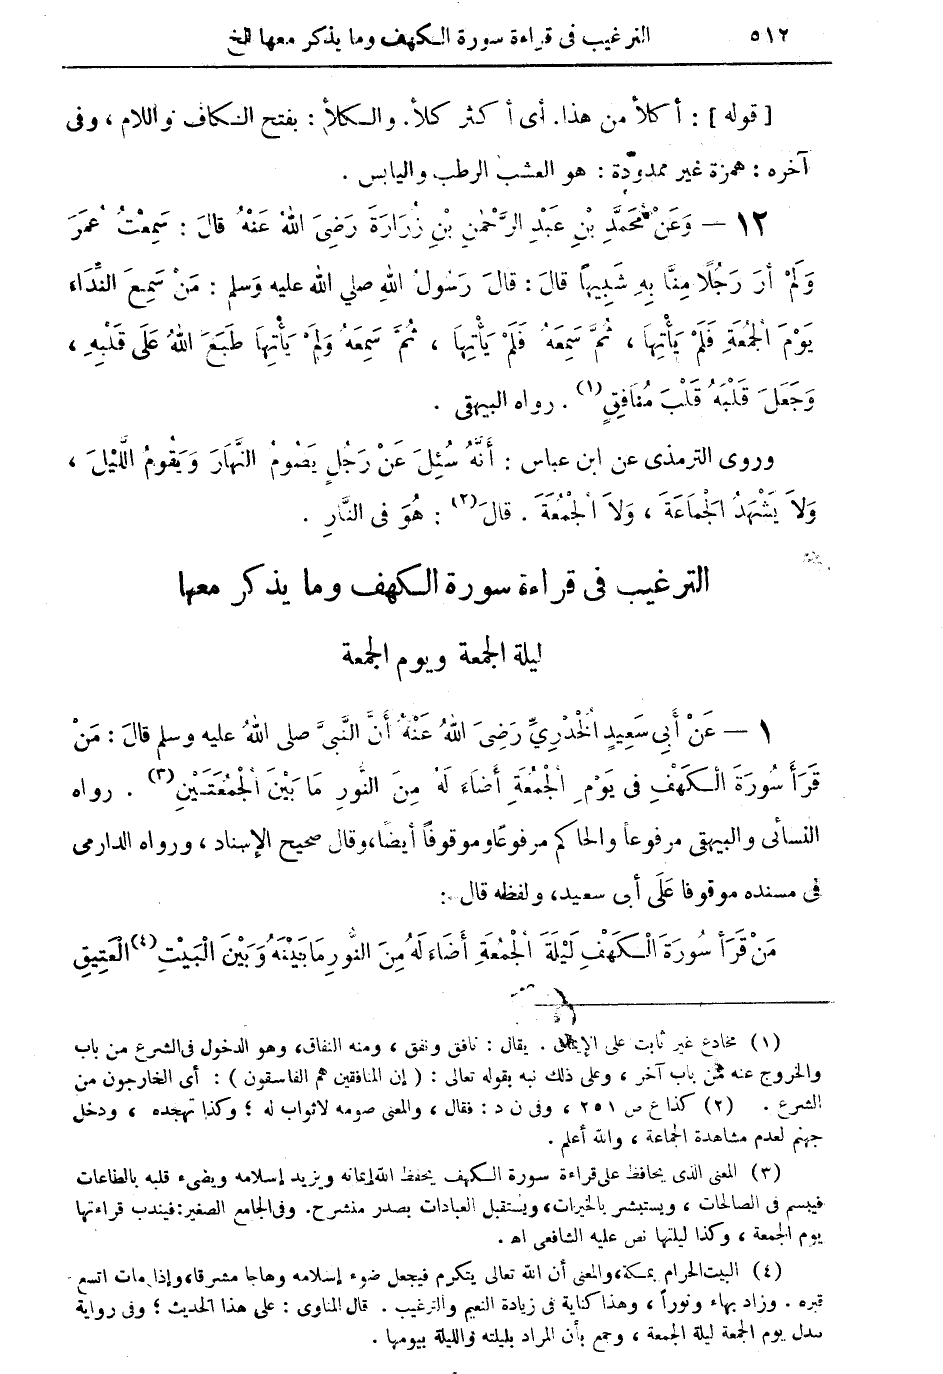 ٥١٢ الترغيب فى قراءة سورة الكهف وما يذكر معها الخ
[ قوله ] : أكلأ من هذا. أى أكثر كلأ. والكلأ : بفتح الكاف واللام ، وفى
آخره : همزة غير ممدودة : هو العشب الرطب واليابس .
١٢ — وَعَنْ مُحَمَّدِ بْنِ عَبْدِ الرَّحْمٰنِ بْنِ زُرَارَةَ رَضِىَ اللهُ عَنْهُ قالَ : سَمِعْتُ عُمَرَ
وَلَمْ أَرَ رَجُلًا مِنَّا بِهِ شَبِيهًا قالَ : قالَ رَسُولُ اللهِ صلي الله عليه وَسلم : مَنْ سَمِعَ النِّدَاءَ
يَوْمَ الْجُمُعَةِ فَلَمْ يَأْتِهَا ، ثُمَّ سَمِعَهُ فَلَمْ يَأْتِهَا ، ثُمَّ سَمِعَهُ وَلَمْ يَأْتِهَا طَبَعَ اللهُ عَلَى قَلْبِهِ ،
وَجَعَلَ قَلْبَهُ قَلْبَ مُنَافِقٍ (١) . رواه البيهقى .
وروى الترمذى عن ابن عباس : أَنَّهُ سُئِلَ عَنْ رَجُلٍ يَصُومُ النَّهَارَ وَيَقُومُ اللَّيْلَ ،
وَلاَ يَشْهَدُ الْجَمَاعَةَ ، وَلاَ الْجُمُعَةَ . قالَ (٢) : هُوَ فى النَّارِ .
الترغيب فى قراءة سورة الكهف وما يذكر معها
ليلة الجمعة ويوم الجمعة
١ — عَنْ أَبِي سَعِيدٍ الْخُدْرِيِّ رَضِىَ اللهُ عَنْهُ أَنَّ النَّبىَّ صلى اللهُ عليه وسلم قالَ : مَنْ
قَرَأَ سُورَةَ الْكَهْفِ فى يَوْمِ الْجُمُعَةِ أَضَاءَ لَهُ مِنَ النُّورِ مَا بَيْنَ الْجُمُعَتَيْنِ (٣) . رواه
النسائى والبيهقى مرفوعاً والحاكم مرفوعًا وموقوفاً أيضًا، وقال صحيح الإسناد ، ورواه الدارمى
فى مسنده موقوفا عَلَى أبى سعيد، ولفظه قال :
مَنْ قَرَأَ سُورَةَ الْكَهْفِ لَيْلَةَ الْجُمُعَةِ أَضَاءَ لَهُ مِنَ النُّورِ مَا بَيْنَهُ وَبَيْنَ الْبَيْتِ (٤) الْعَتِيقِ
(١) مخادع غير ثابت على الإيمان . يقال : نافق ونفق ، ومنه النفاق، وهو الدخول فى الشرع من باب
والخروج عنه من باب آخر ، وعلى ذلك نبه بقوله تعالى : ( إن المنافقين هم الفاسقون ) : أى الخارجون من
الشرع . (٢) كذا ع ص ٢٥١ ، وفى ن د : فقال ، والمعنى صومه لاثواب له ؛ وكذا تهجده ، ودخل
جهنم لعدم مشاهدة الجماعة ، والله أعلم .
(٣) المعنى الذى يحافظ على قراءة سورة الكهف يحفظ الله إيمانه ويزيد إسلامه ويضىء قلبه بالطاعات
فيبسم فى الصالحات ، ويستبشر بالخيرات، ويستقبل العبادات بصدر منشرح. وفى الجامع الصغير: فيندب قراءتها
يوم الجمعة ، وكذا ليلتها نص عليه الشافعى اهـ .
(٤) البيت الحرام بمكة، والمعنى أن الله تعالى يتكرم فيجعل ضوء إسلامه وهاجا مشرقا، وإذا مات اتسع
قبره . وزاد بهاء ونوراً ، وهذا كناية فى زيادة النعيم والترغيب . قال المناوى : على هذا الحديث ؛ وفى رواية
بدل يوم الجمعة ليلة الجمعة ، وجمع بأن المراد بليلته والليلة بيومها .